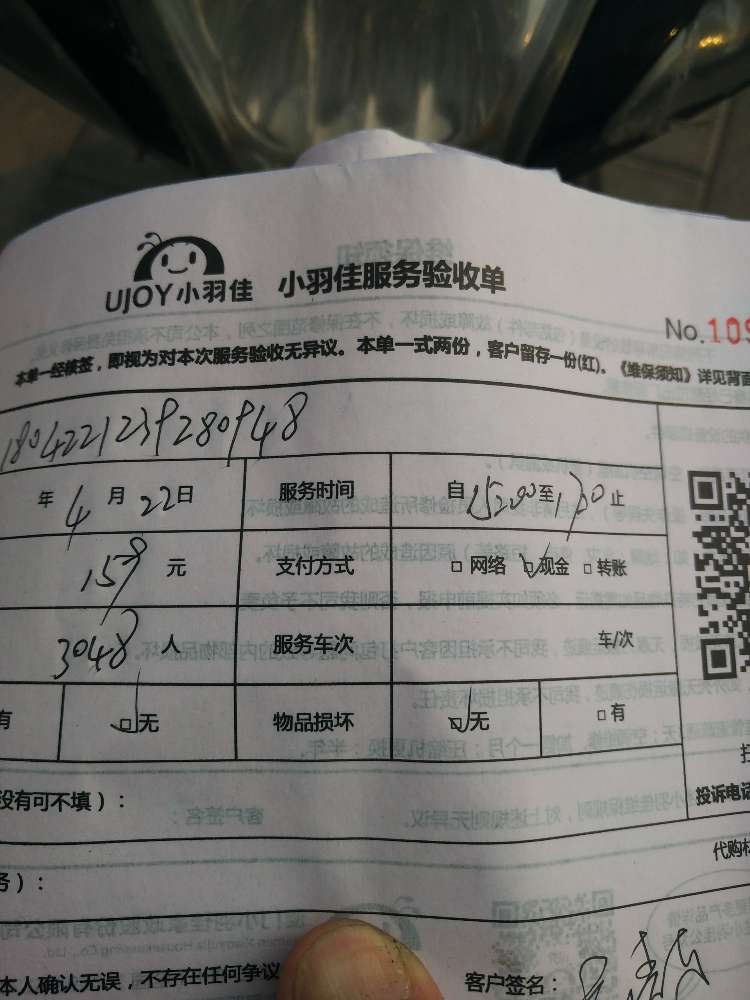 UJOY小羽佳 小羽佳服务验收单
No.109
本单一经核签,即视为对本次服务验收无异议。本单一式两份,客户留存一份(红)。《维保须知》详见背面
1804221239280948
年 4 月 22 日 服务时间 自 15:00 至 17:00 止
159 元 支付方式 □ 网络 ☑ 现金 □ 转账
3048 人 服务车次 车/次
有 ☑ 无 物品损坏 ☑ 无 □ 有
投诉电话
没有可不填):
代购材
务):
本人确认无误,不存在任何争议 客户签名: